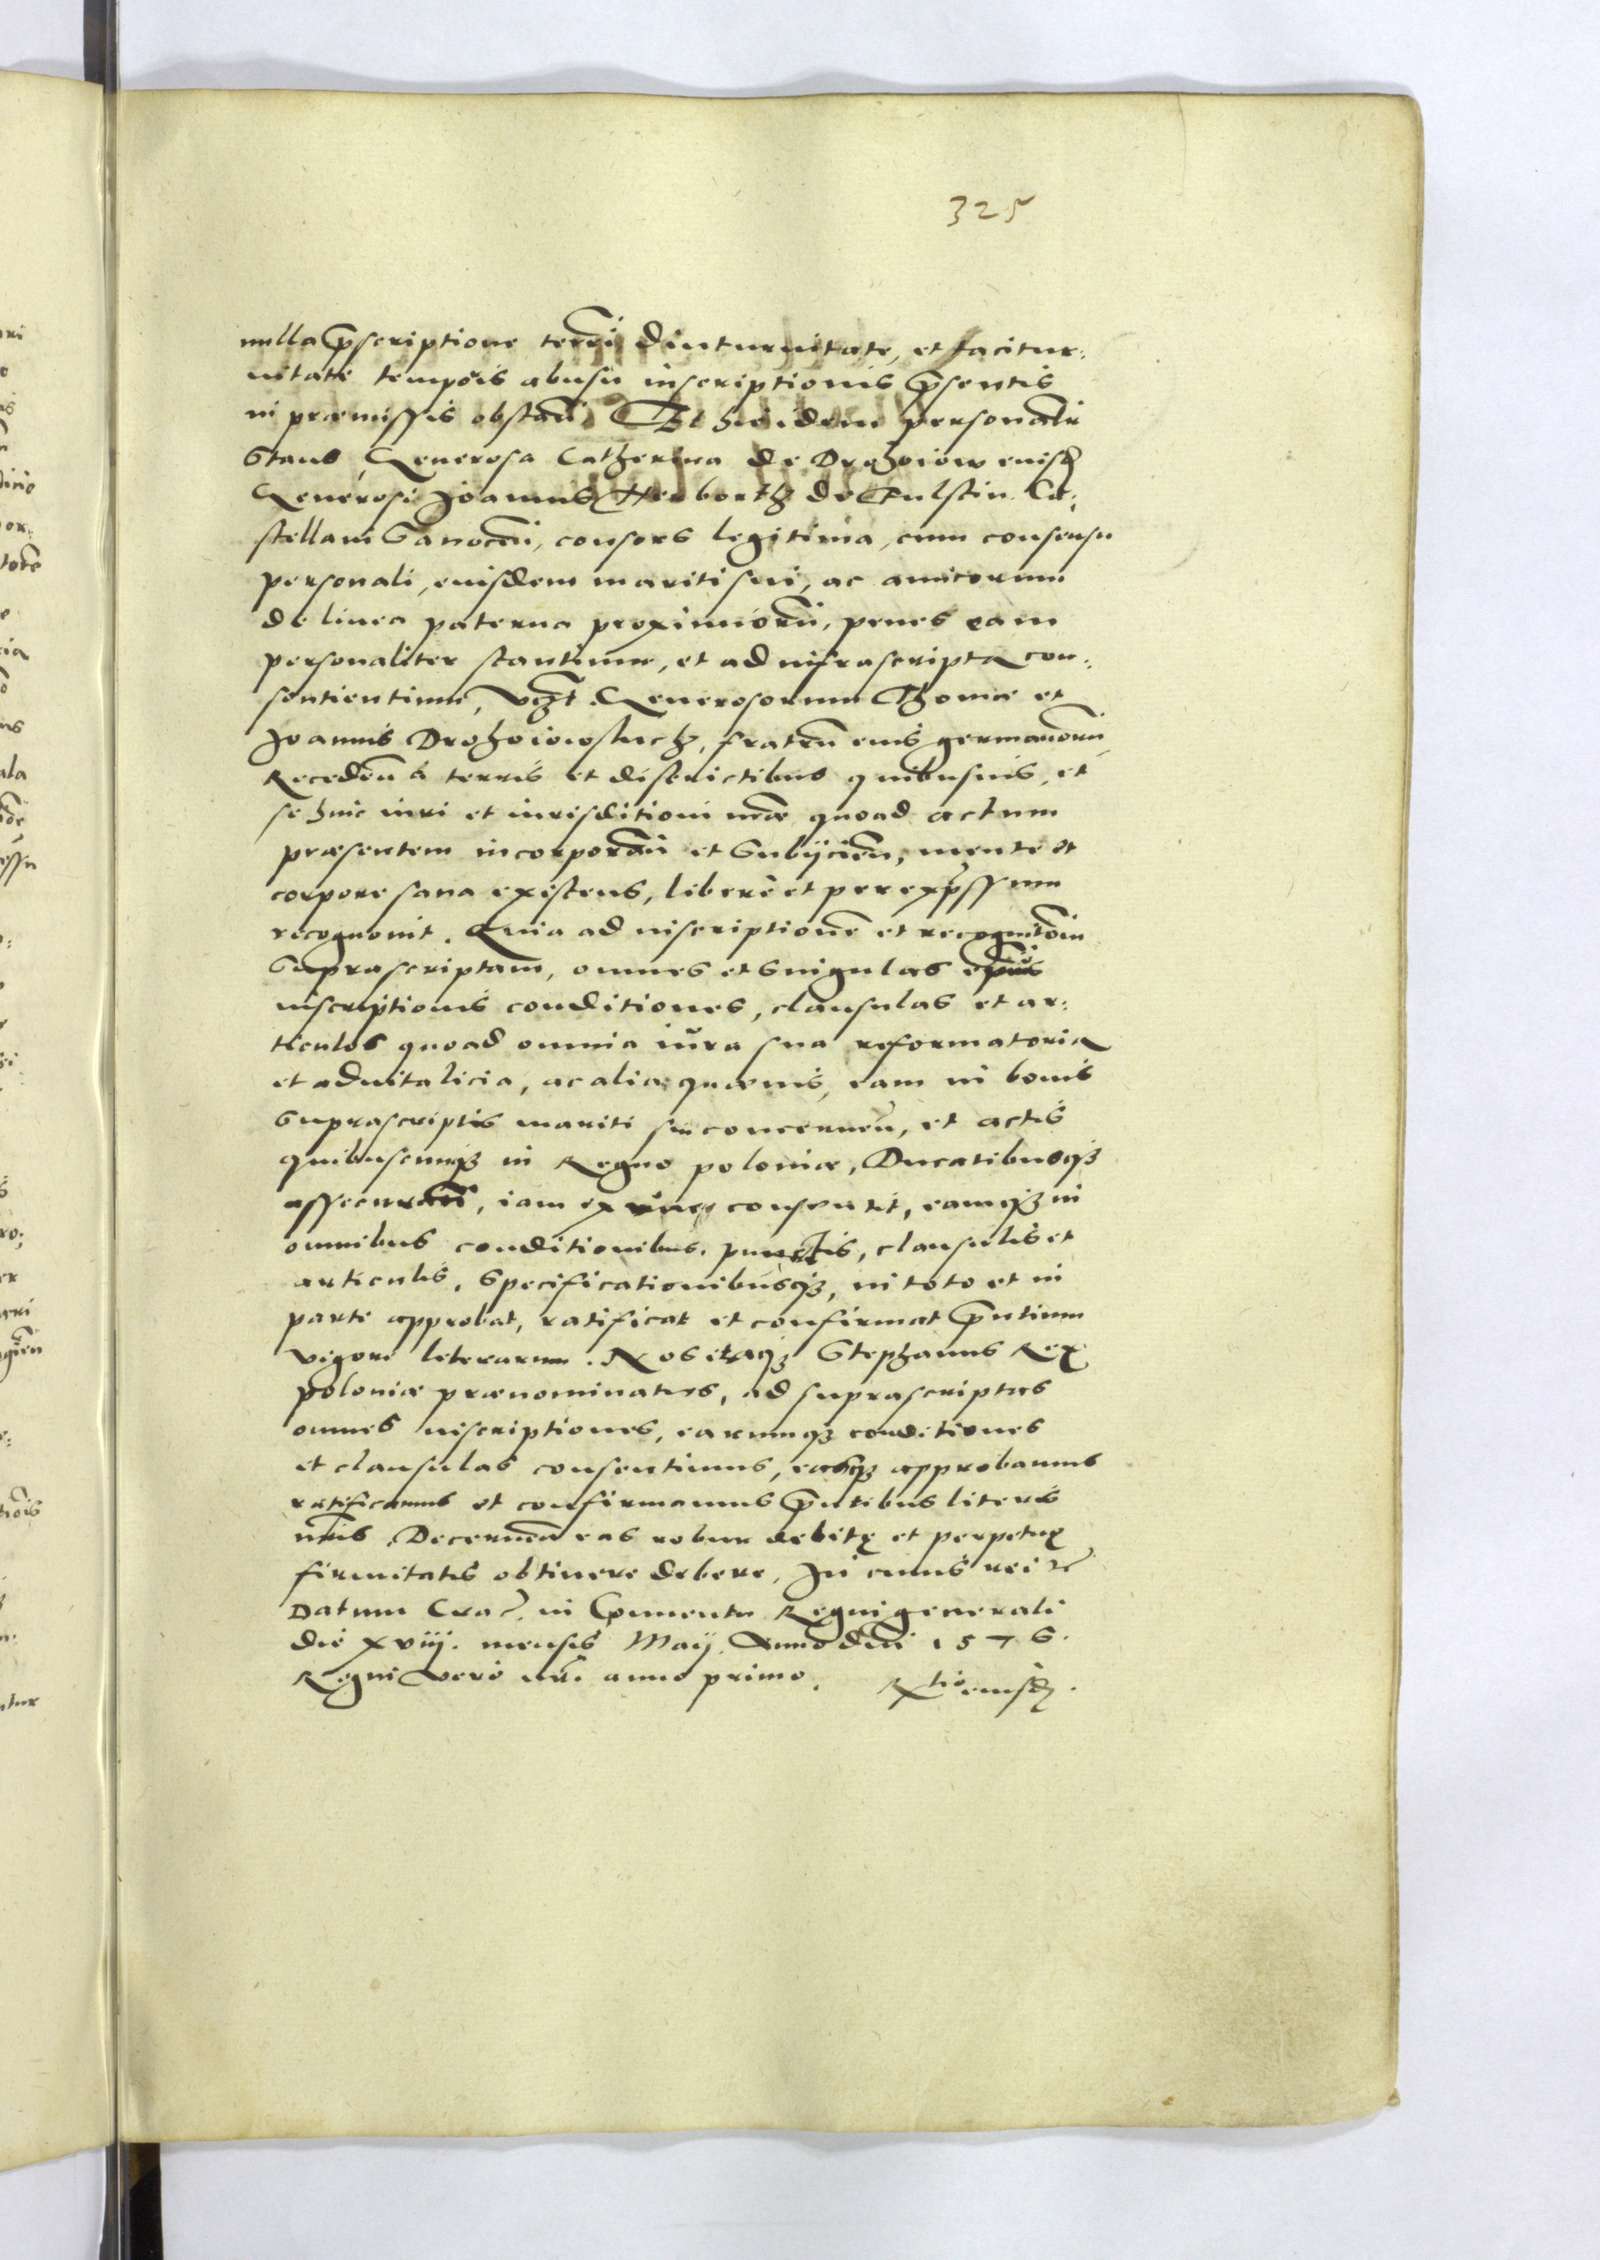 325
nulla p̄scriptione terr̄i diuturnitate, et tacitur:
nitate tempōis abusu inscriptionis p̄sentis
in præmissis obstan̄ Et hic idem personalr̄
stans Generosa Catherina de Drohoiow eiusd̄
Generosi Joannis Herborth de Fulstin Ca:
stellani Sanocen̄, consors legitima, cum consensu
personali, eiusdem mariti sui, ac amicorum
de linea paterna proximiorū, penes eam
personaliter stantium, et ad infrascripta con:
sentientium, vzt Generosorum Thomæ et
Joannis Drohoiowskich, fratrū eius germanorū
Receden̄ à terris et districtibus quibusuis, et
se huic iuri et iurisditioni nr̄æ quoad actum
præsentem incorporan̄ et subijcien̄, mente et
corpore sana existens, liberè et per exp̄ssum
recognouit. Quia ad inscriptionē et recognitōem
suprascriptam, omnes et singulas
inscriptionis conditiones, clausulas et ar:
ticulos quoad omnia iura sua reformatoria
et aduitalicia, ac alia quæuis, eam in bonis
suprascriptis mariti sui concernen̄, et actis
quibuscunq3 in Regno poloniæ, Ducatibusq3
assecuran̄, iam ex nunc consentit, eamq3 in
omnibus conditionibus, punctis, clausulis et
articulis, specificationibusq3, in toto et in
parte approbat, ratificat et confirmat p̄ntium
vigore literarum. Nos itaq3 Stephanus Rex
poloniæ prænominatus, ad suprascriptas
omnes inscriptiones, earumq3 conditiones
et clausulas consentimus, easq3 approbamus
ratificamus et confirmamus p̄ntibus literis
nr̄is, Decernen̄ eas robur debitę et perpetuę
firmitatis obtinere debere. In cuius rei &
Datum Crac̄. in Conuentu Regni generali
die xviij. mensis Maij Anno dn̄i 1576.
Regni vero nr̄i anno primo. Rtio eiusd̄.